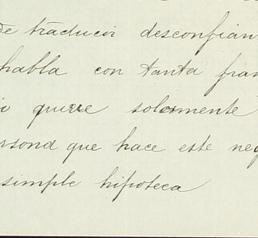 de traducir desconfian
habla con tanta fran
quiere solamente
rsona que hace este neg
simple hipoteca